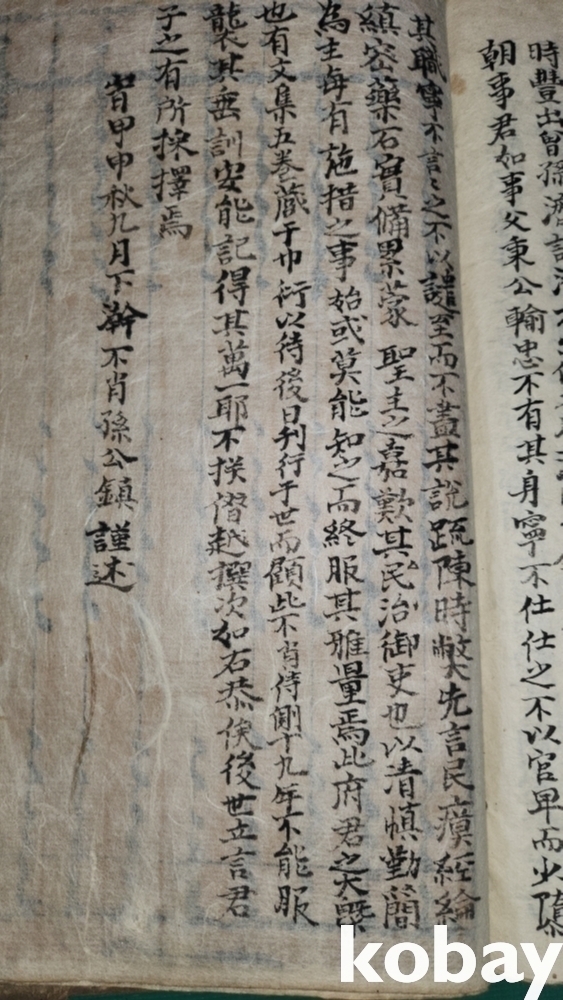 時豊出曾孫
朝事君如事父秉公輸忠不有其身寧不仕仕之不以官卑而少隳
其職寧不言言之不以譴至而不盡其說疏陳時弊先言民瘼經綸
縝密藥石實備累蒙 聖主之嘉歎其民治御吏也以清慎勤簡
為主每有施措之事始或莫能知之而終服其雅量焉此府君之大槩
也有文集五卷藏于巾衍以待後日刊行于世而顧此不肖待側十九年不能服
襲其垂訓安能記得其萬一耶不揆僭越撰次如右恭俟後世立言君
子之有所採擇焉
旹甲申秋九月下澣不肖孫公鎮 謹述
kobay